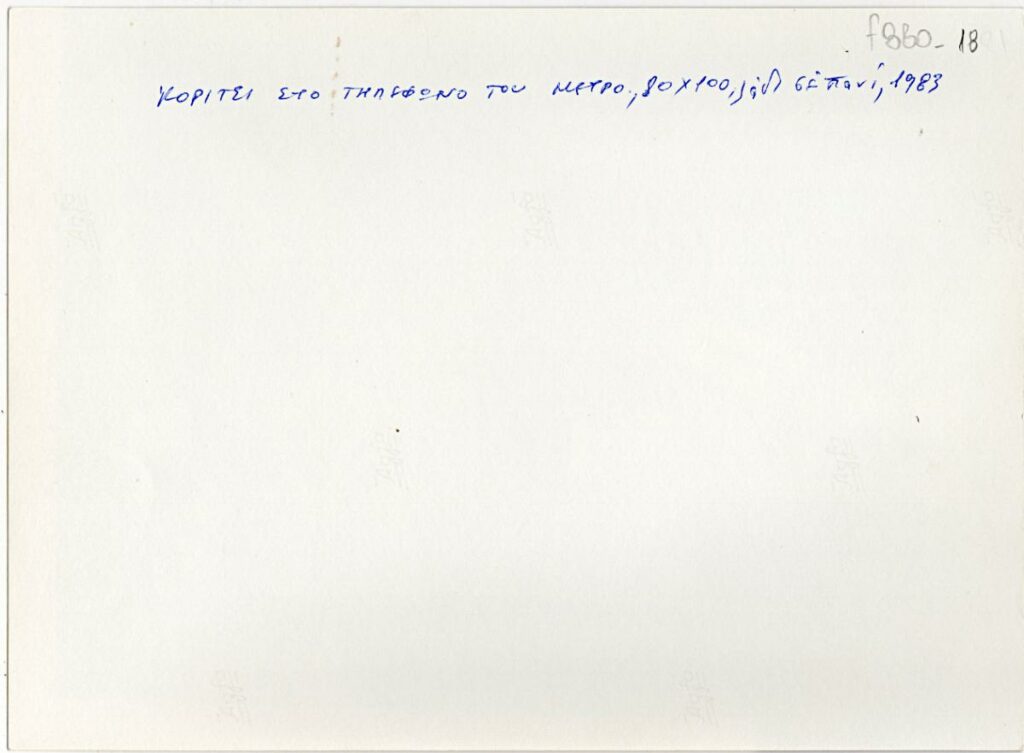 f880- 18
ΚΟΡΙΤΣΙ ΣΤΟ ΤΗΛΕΦΩΝΟ ΤΟΥ ΜΕΤΡΟ, 80Χ100, λάδι σέ πανί, 1983